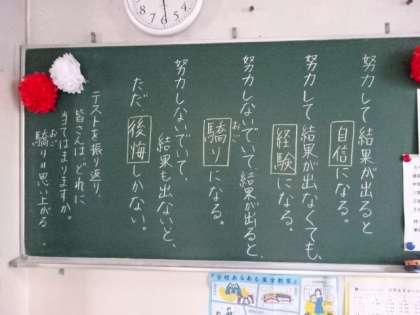 努力して結果が出ると
自信になる。
努力して結果が出なくても、
経験になる。
努力しないでいて結果が出ると、
おご
驕りになる。
努力しないでいて、
結果も出ないと、
ただ後悔しかない。
テストを振り返り、
皆さんはどれに
当てはまりますか。
おご
驕り=思い上がる